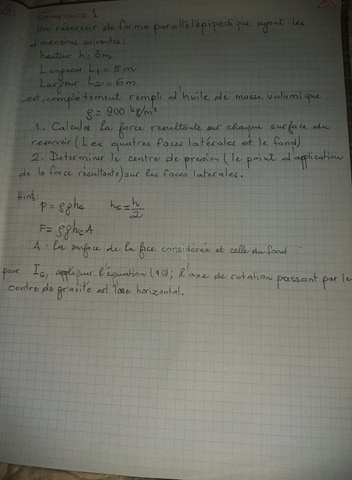 Exercice: 1
Un réservoir de forme parallélépipédique ayant les
dimensions suivantes:
hauteur h: 3m
Longueur L1 = 8m
Largeur L2 = 6m
est complètement rempli d'huile de masse volumique
ρ = 900 kg/m³
1. Calculer la force resultante sur chaque surface du
reservoir (Les quatres faces latérales et le fond)
2. Determiner le centre de pression (le point d'application
de la force resultante) sur les faces laterales.
Hint:
P = ρghc hc = h/2
F = ρghcA
A: la surface de la face considérée et celle du fond
pour IG, appliquer l'équation (10); l'axe de rotation passant par le
centre de gravité est l'axe horizontal.